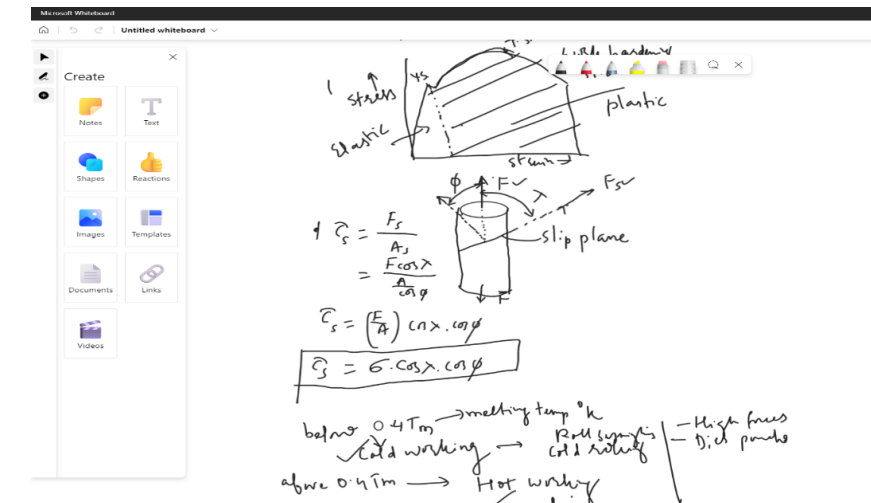 Microsoft Whiteboard
Untitled whiteboard
Create
Notes
Text
Shapes
Reactions
Images
Templates
Documents
Links
Videos
YS
stress
Elastic
plastic
strain →
ϕ
F ✓
λ
Fs ✓
slip plane
F
τs = Fs / As
= F cos λ / (A / cos ϕ)
τs = (F/A) cos λ . cos ϕ
τs = σ . cos λ . cos ϕ
before 0.4 Tm → melting temp °K
✓ Cold working →
cold rolling
above 0.4 Tm → Hot working
- High forces
- Dies